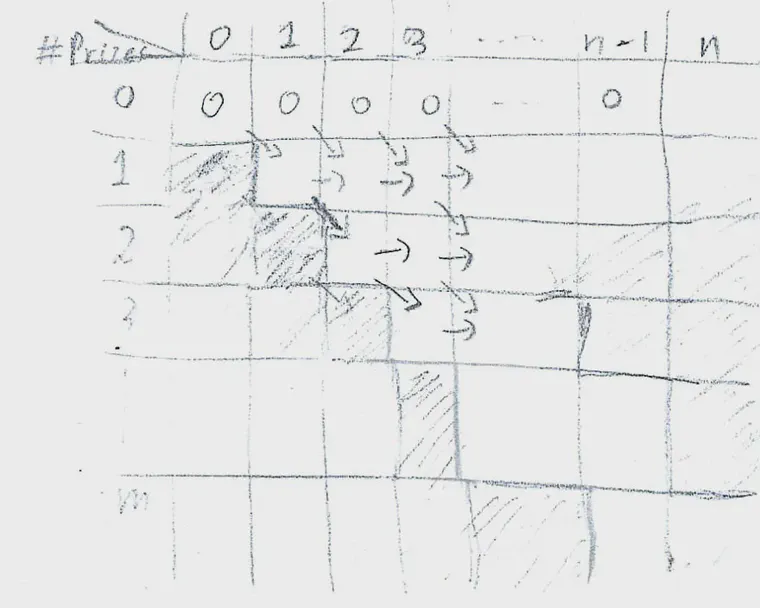 #Prizes 0 1 2 3 ..... n-1 n
0 0 0 0 0 ---- 0
1
2
3
m